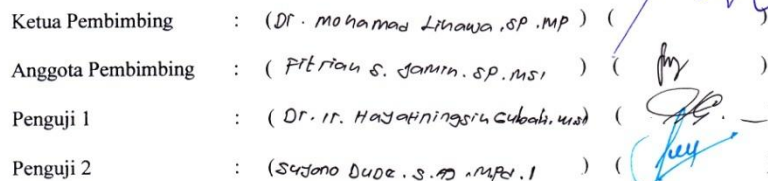 Ketua Pembimbing : (Dr. Mohamad Lihawa, SP. MP) ( )
Anggota Pembimbing : ( Fitriah S. Jamin. SP. MSi ) ( )
Penguji 1 : ( Dr. Ir. Hayatiningsih Gubali, MSi) ( )
Penguji 2 : (Sujono Dude. S. Ag. MPd. I ) (